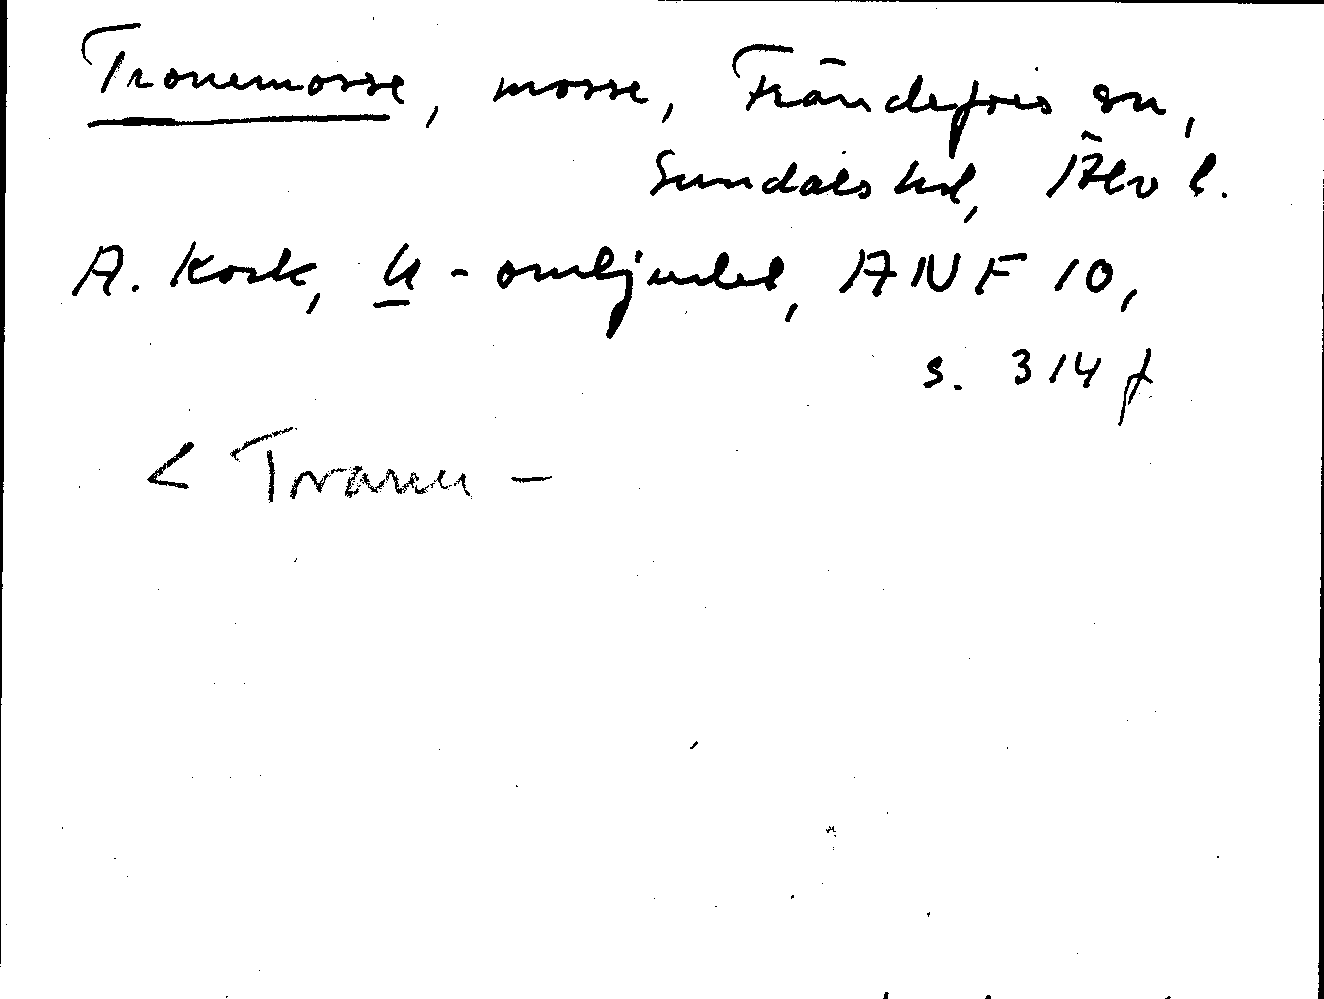 Tronemosse, mosse, Frändefors sn,
Sundals hd, Älvb l.
A. Kock, u-omljudet, ANF 10,
s. 314 f
< Tranu -